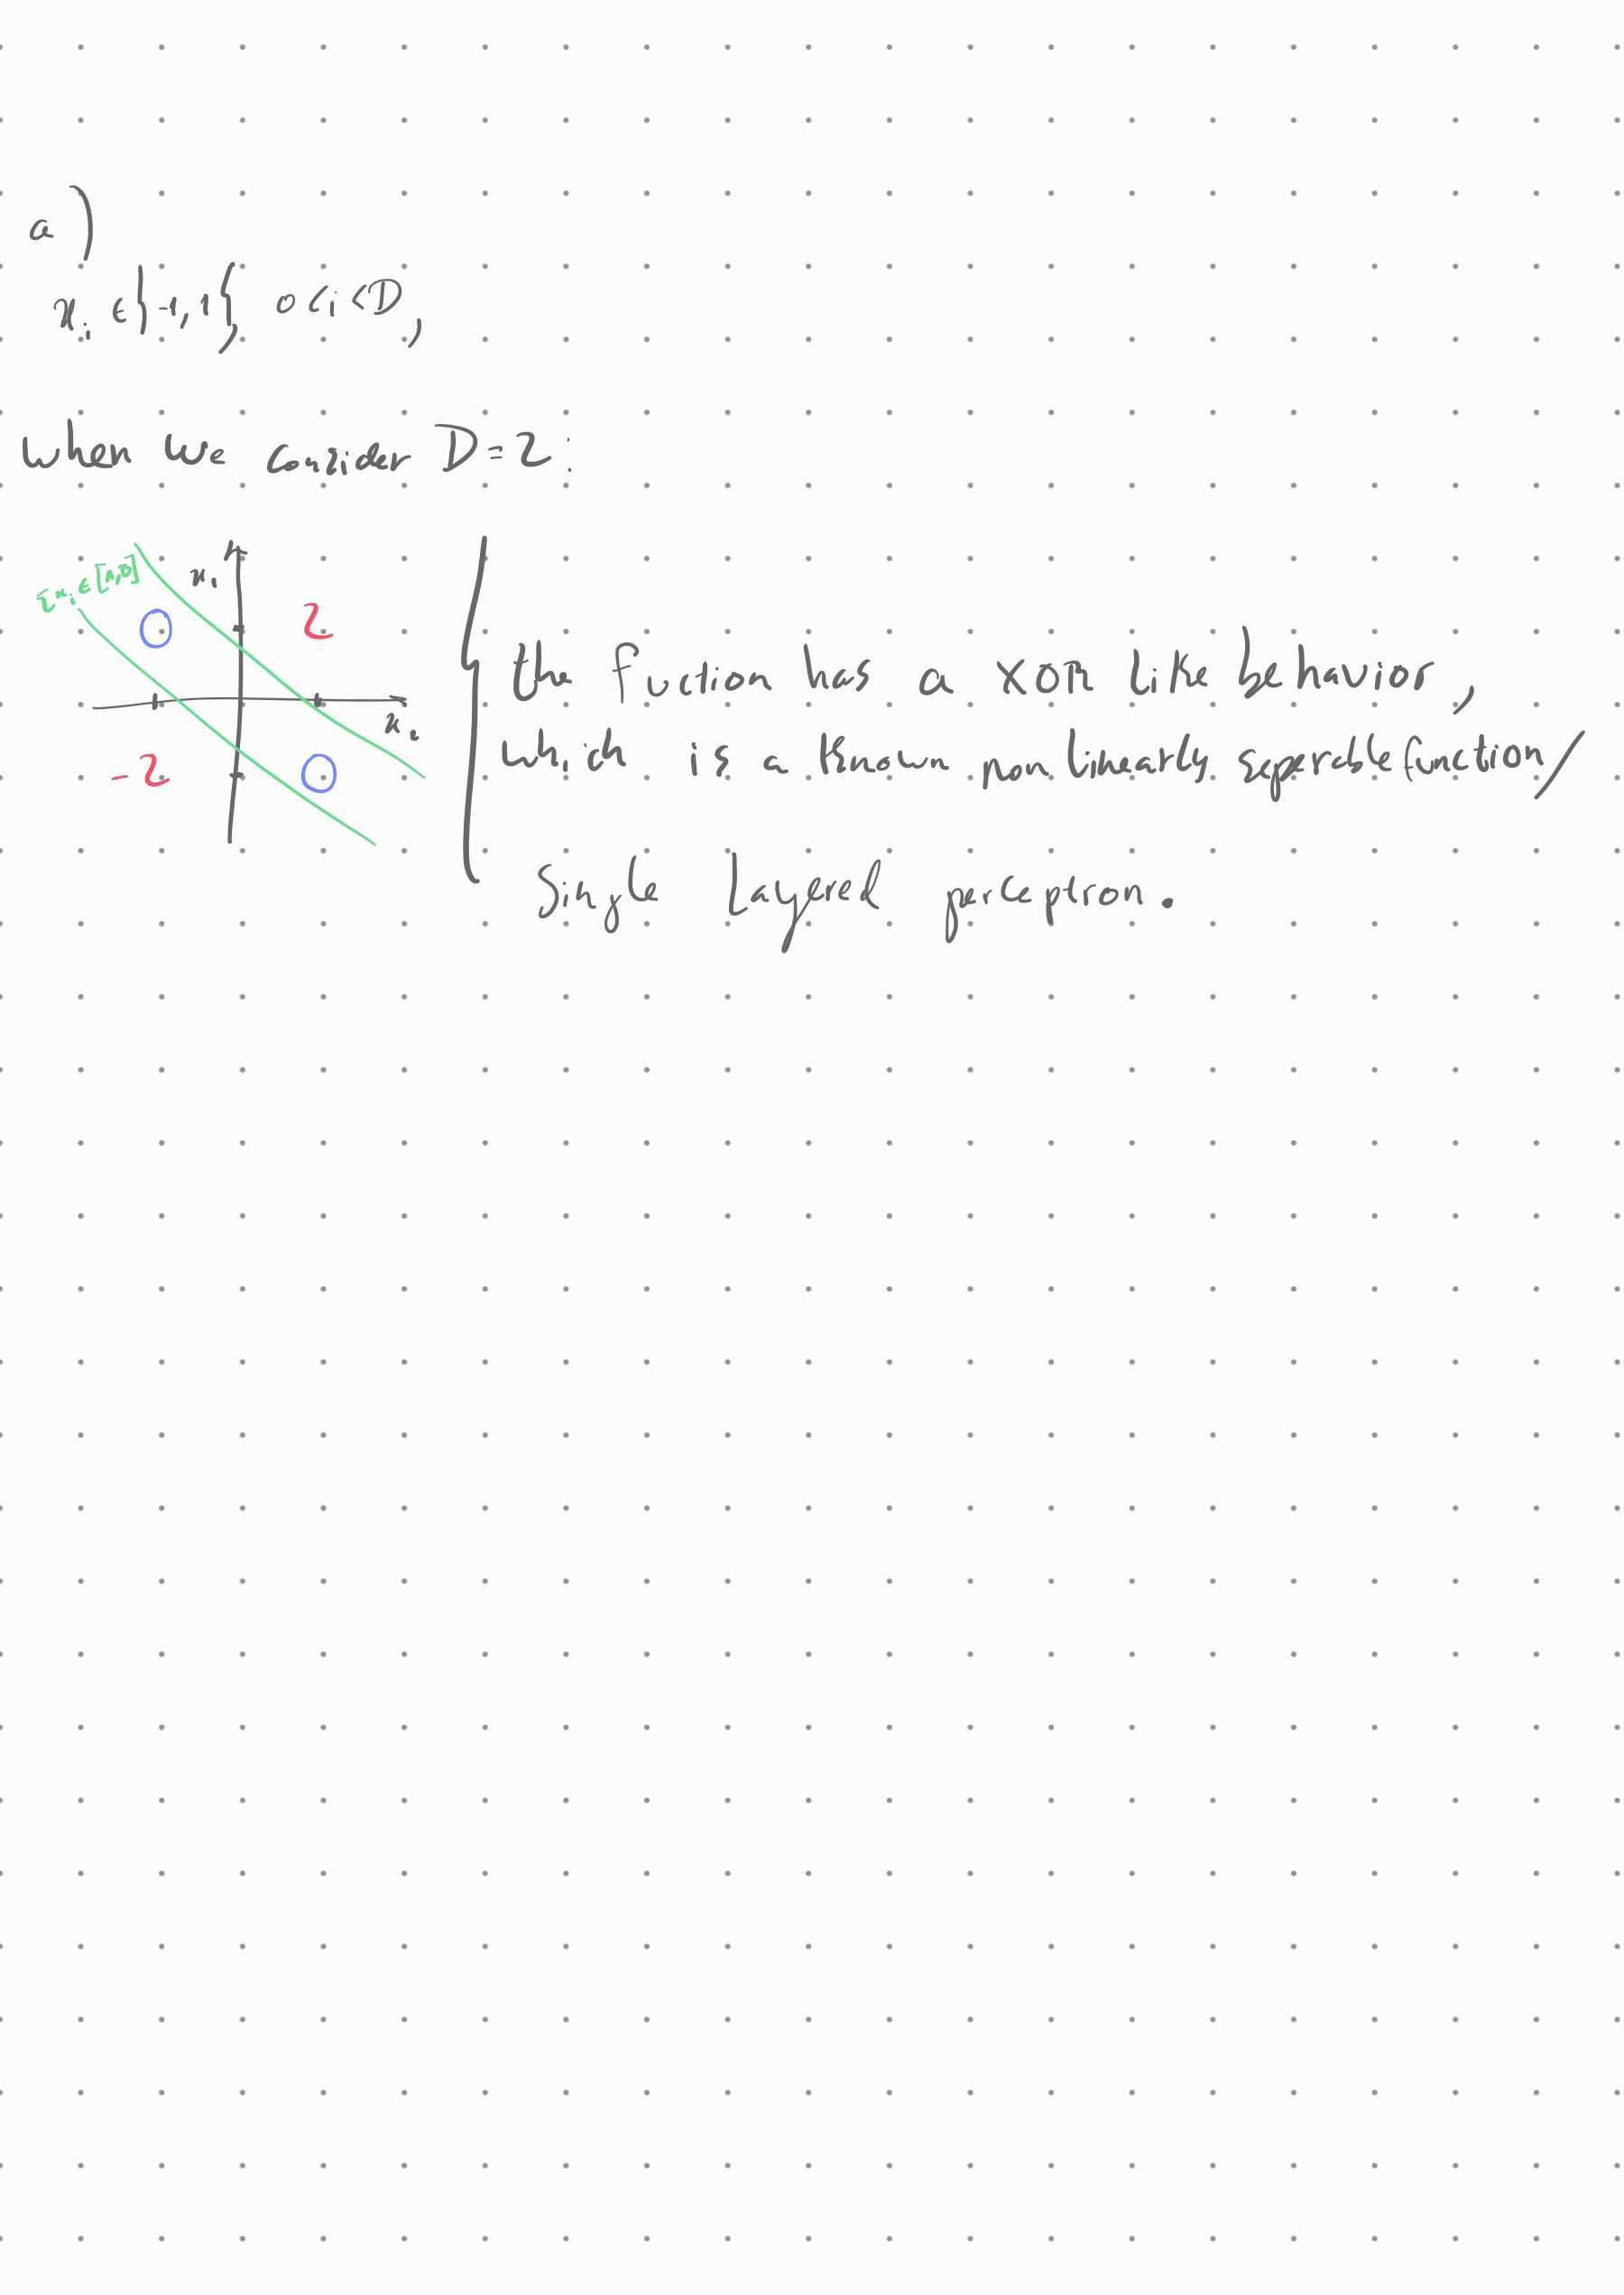 a)
x_i ∈ }-1,1{ 0<i<D,
When we consider D=2:
Σx_i ∈
x_1
0
2
x_2
-2
0
the Function has a XOR like behavior,
which is a known non linearly seperable function,
Single Layered perceptron.